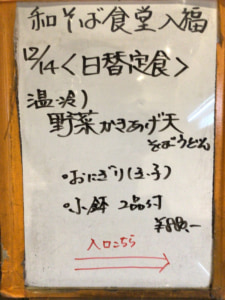 和そば食堂入福
12/14<日替定食>
温・冷)
野菜かきあげ天
そば うどん
・おにぎり(
・小鉢 2品付
入口こちら